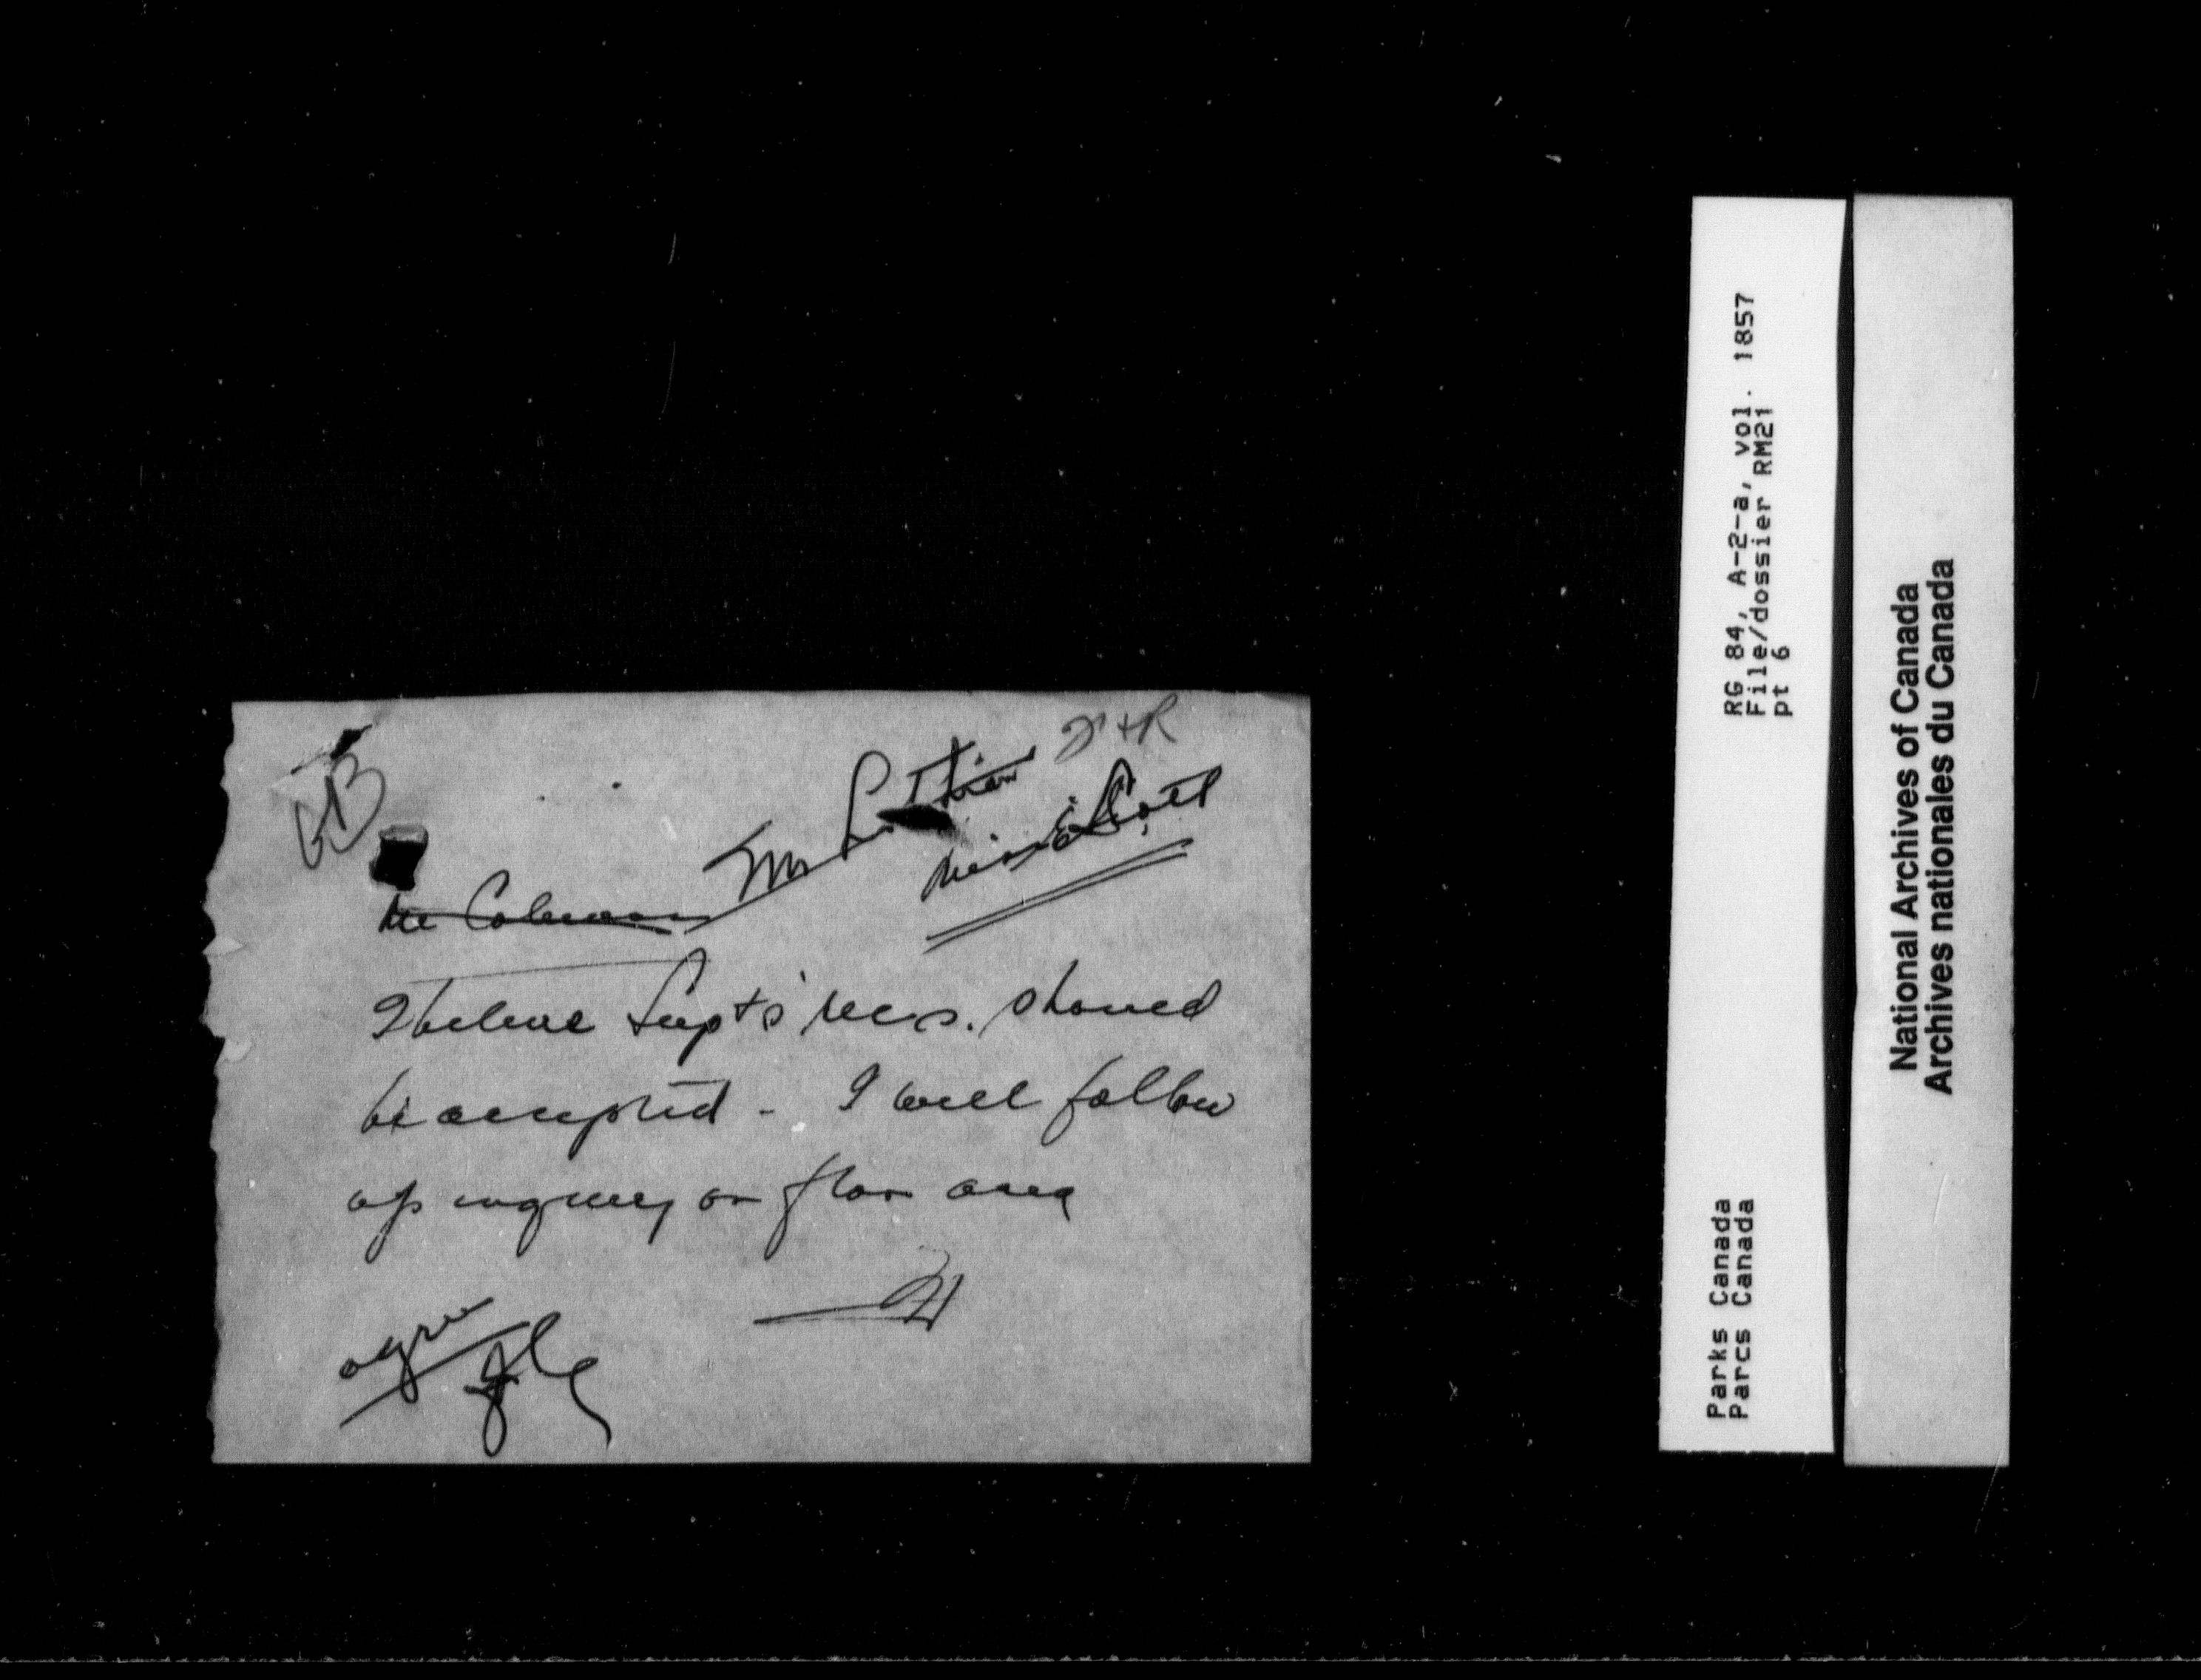 Mr Lothian
Miss E. Scott
Mr Coleman
I believe Supt's recs. should
be accepted - I will follow
up inquiry on floor area
H
agree
RG 84, A-2-a, vol. 1857
File/dossier RM21
pt 6
Parks Canada
Parcs Canada
National Archives of Canada
Archives nationales du Canada